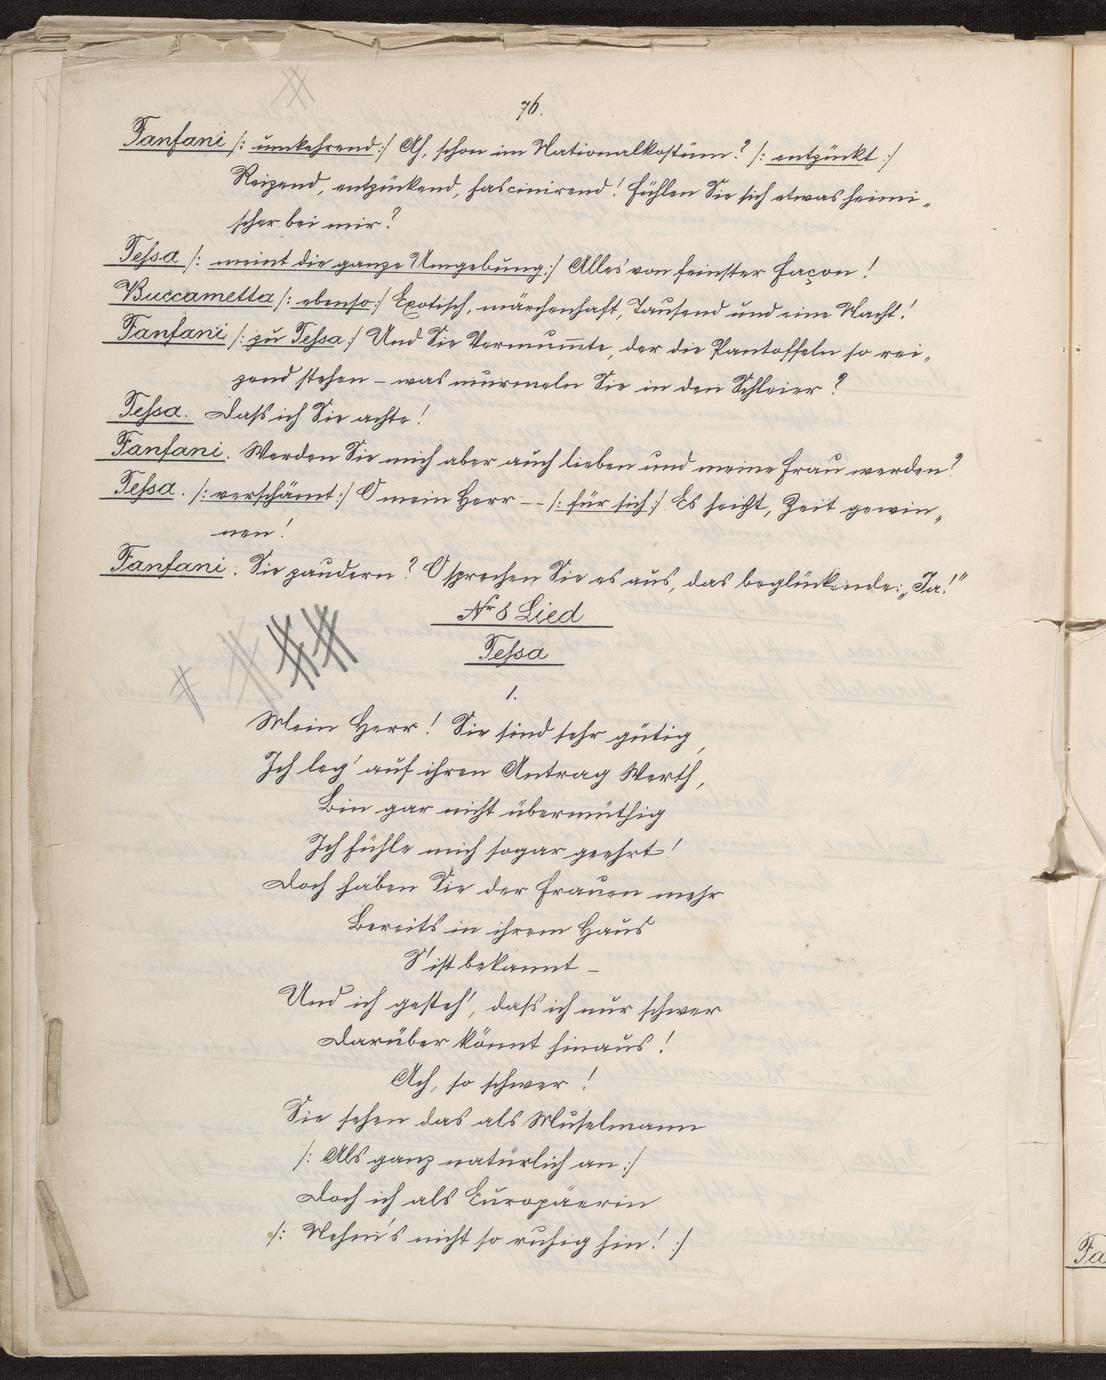 76.
Fanfani /: umkehrend :/ Ah, schon im Nationalkostüm? /: entzückt :/
Reizend, entzückend, fascinirend! Fühlen Sie sich etwas heimi„
scher bei mir?
Tessa /: meint die ganze Umgebung :/ Alles von feinster Façon!
Buccametta /: ebenso :/ Exotisch, märchenhaft, Tausend und eine Nacht!
Fanfani /: zu Tessa :/ Und Sie Vermum̅te, der die Pantoffeln so rei„
zend stehen – was murmeln Sie in den Schleier?
Tessa. Dass ich Sie achte!
Fanfani. Werden Sie mich aber auch lieben und meine Frau werden?
Tessa. /: verschämt :/ O mein Herr -- /: für sich :/ Es heißt, Zeit gewin„
nen!
Fanfani. Sie zaudern? O sprechen Sie es aus, das beglückende: „Ja!"
Nr 8 Lied
Tessa
1.
Mein Herr! Sie sind sehr gütig,
Ich leg' auf ihren Antrag Werth,
Bin gar nicht übermüthig
Ich fühle mich sogar geehrt!
Doch haben Sie der Frauen mehr
Bereits in ihrem Haus
S' ist bekannt –
Und ich gesteh', dass ich nur schwer
Darüber könnt hinaus!
Ach, so schwer!
Sie sehen das als Muselmann
/: Als ganz natürlich an :/
Doch ich als Europäerin
/: Nehm's nicht so ruhig hin! :/
Fa